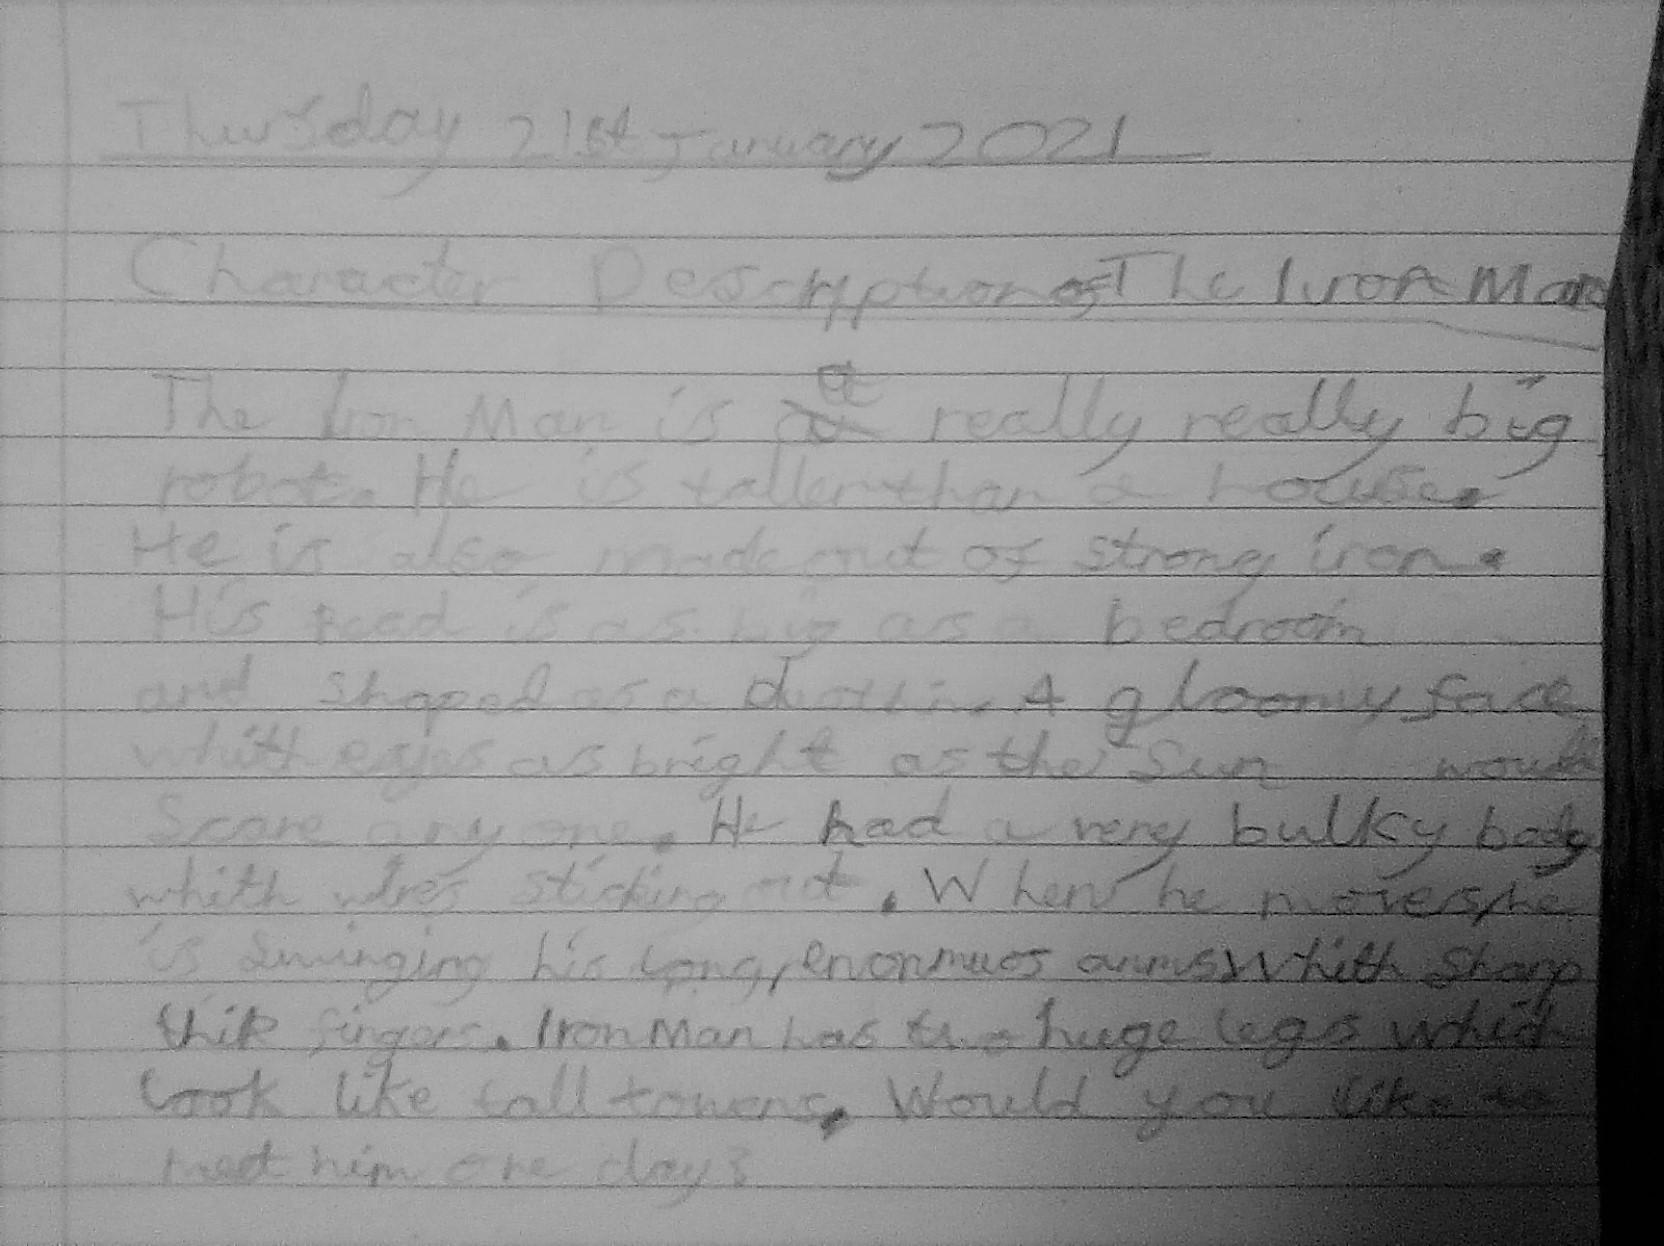 Thursday 21st January 2021
Character Description of The Iron Man
The Iron Man is a really really big
robot. He is taller than a house.
He is also made out of strong iron.
His head is as big as a bedroom
and shaped as a dustbin. A gloomy face
whith eyes as bright as the Sun would
Scare any one. He had a very bulky body
whith wires sticking out. When he moves, he
is swinging his long, enonmuos arms whith Sharp
thik fingers. Iron Man has two huge legs which
look like tall towers. Would you like to
meet him one day?